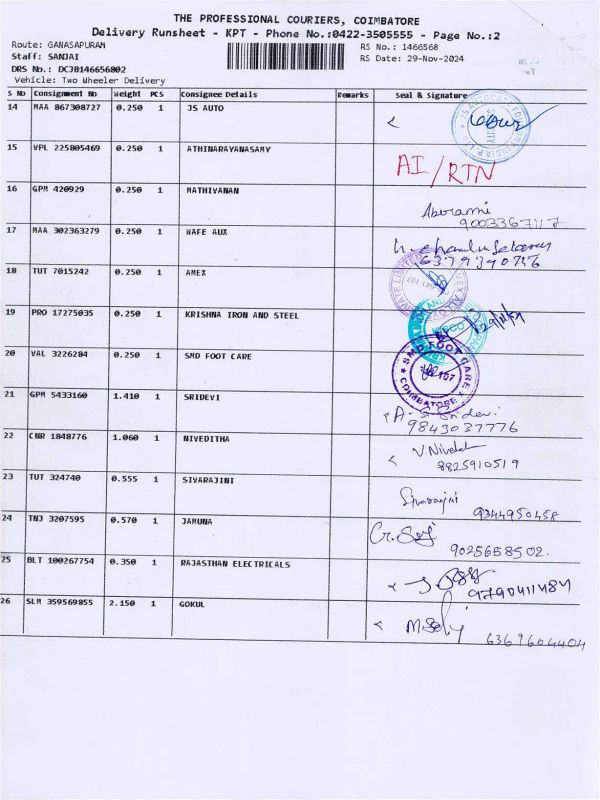 THE PROFESSIONAL COURIERS, COIMBATORE
Delivery Runsheet - KPT - Phone No.:0422-3505555 - Page No.:2
Route: GANASAPURAM
RS No.: 1466568
Staff: SANJAI
RS Date: 29-Nov-2024
DRS No.: DCJB146656802
Vehicle: Two Wheeler Delivery
S No Consignment No Weight PCS Consignee Details Remarks Seal & Signature
14 MAA 867308727 0.250 1 JS AUTO
15 VPL 225805469 0.250 1 ATHINARAYANASAMY AI/RTN
16 GPM 420929 0.250 1 MATHIVANAN
Abirami
9003367117
17 MAA 302363279 0.250 1 WAFE AUX
6379390756
18 TUT 7015242 0.250 1 AMEX
19 PRO 17275035 0.250 1 KRISHNA IRON AND STEEL
20 VAL 3226284 0.250 1 SMD FOOT CARE
SMD FOOT CARE
COIMBATORE
21 GPM 5433160 1.410 1 SRIDEVI
A. S. Sridevi
9843037776
22 CNR 1848776 1.060 1 NIVEDITHA
V. Nivedh
8825910519
23 TUT 324740 0.555 1 SIVARAJINI
Sivarajini
9344950458
24 TNJ 3207595 0.570 1 JAMUNA
9025658502.
25 BLT 100267754 0.350 1 RAJASTHAN ELECTRICALS
9790411484
26 SLM 359569855 2.150 1 GOKUL
6369604404